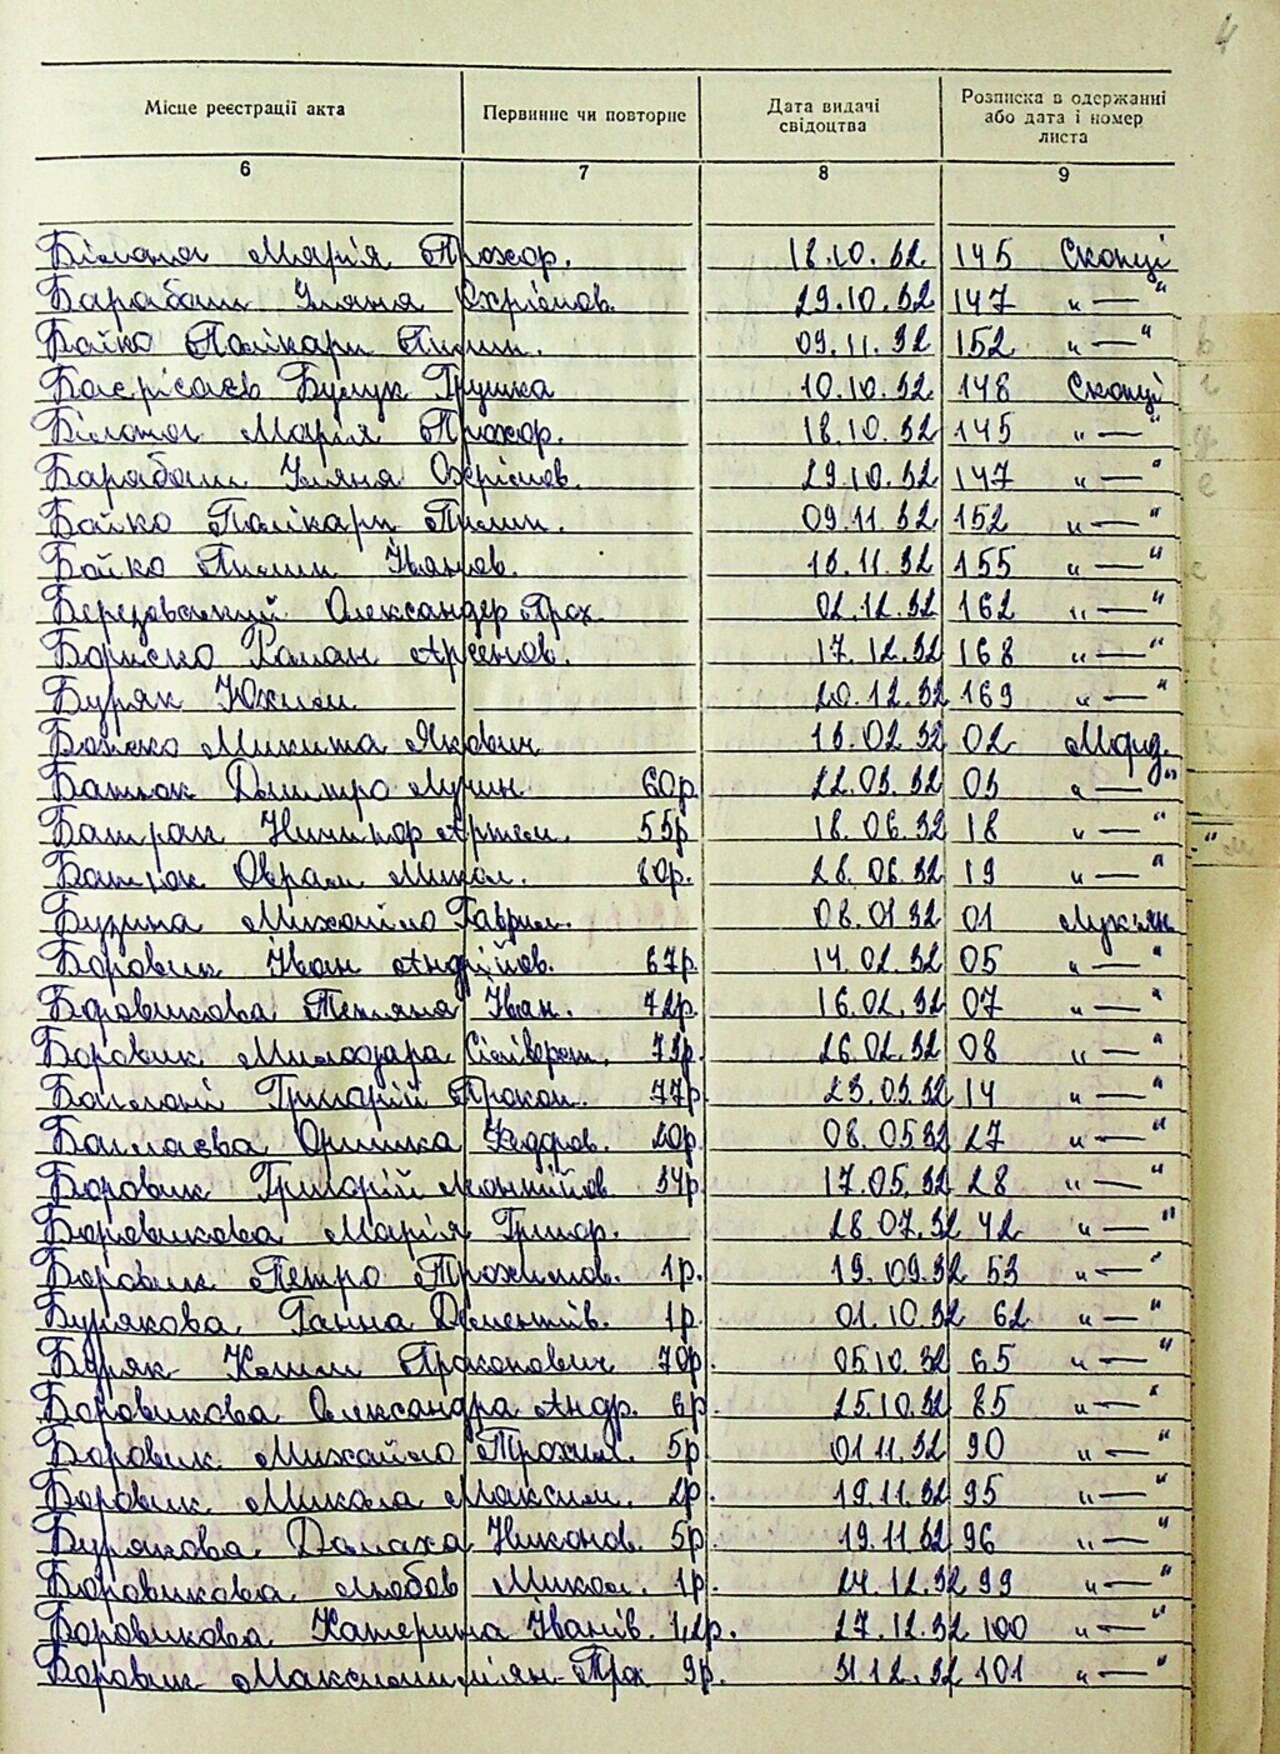 4
Місце реєстрації акта Первинне чи повторне Дата видачі свідоцтва Розписка в одержанні або дата і номер листа
6 7 8 9
Білана Марія Прохор. 18.10.32 145 Сконці
Барабаш Уляна Охрімов. 29.10.32 147 „—“
Байко Палікарп Пилип. 09.11.32 152 „—“
Булук Грушка 10.10.32 148 Сконці
Білана Марія Прохор. 18.10.32 145 „—“
Барабаш Уляна Охрімов. 29.10.32 147 „—“
Байко Палікарп Пилип. 09.11.32 152 „—“
Байко Пилип Іванов. 13.11.32 155 „—“
Березовський Олександер Прох 02.12.32 162 „—“
Роман Арсенов. 17.12.32 168 „—“
Буряк Юхим 20.12.32 169 „—“
Микита Якович 13.02.32 02
Батюк Дмитро Лукин 60р 22.03.32 03 „—“
Батрак Ничипор Артем. 55р 18.06.32 18 „—“
Батюк Оврам Микол. 80р. 28.06.32 19 „—“
Бузина Михайло Гаврил. 08.01.32 01 Лук'ян
Боровик Іван Андрійов. 67р. 14.02.32 05 „—“
Боровикова Тетяна Іван. 72р. 16.02.32 07 „—“
Боровик Сіліверст. 73р. 26.02.32 08 „—“
Григорій Прокоп. 77р. 23.03.32 14 „—“
Оришка Федоров. 20р. 08.05.32 27 „—“
Боровик Григорій 34р. 17.05.32 28 „—“
Боровикова Марія Григор. 28.07.32 42 „—“
Боровик Петро Трохимов. 1р. 19.09.32 53 „—“
Бурякова Ганна Дементів. 1р. 01.10.32 62 „—“
Буряк Клим Прокопович 70р. 05.10.32 65 „—“
Боровикова Олександра Андр. 6р. 25.10.32 85 „—“
Боровик Михайло Трохим. 5р. 01.11.32 90 „—“
Боровик Микола Максим. 2р. 19.11.32 95 „—“
Бурякова Домаха Никонов. 5р. 19.11.32 96 „—“
Боровикова Любов Микол. 1р. 24.12.32 99 „—“
Боровикова Катерина Іванів. 1,2р. 27.12.32 100 „—“
Боровик Максиміліян Тро 9р. 31.12.32 101 „—“